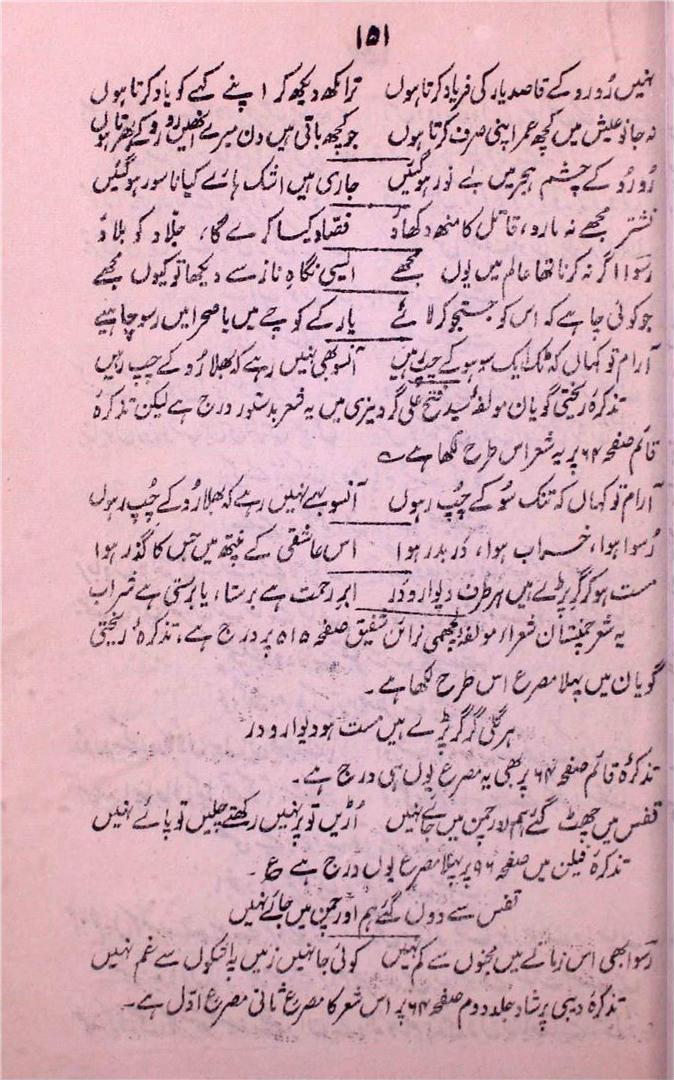 ۱۵۱
نہیں رُو رو کے قاصد یار کی فریاد کرتا ہوں    ترا لکھ دیکھ کر اپنے کہے کو یاد کرتا ہوں
نہ جانو عیش میں کچھ عمر اپنی صرف کرتا ہوں    جو کچھ باقی ہیں دن میرے انھیں رو رو کے بھرتا ہوں
رُو رُو کے چشم ہجر میں بے نور ہوگئیں    جاری ہیں اشک ہائے کیا ناسور ہوگئیں
نشتر مجھے نہ مارو، قاتل کا منھ دکھاؤ    فصّاد کیا کرے گا، جلّاد کو بلاؤ
رسوا اگر نہ کرنا تھا عالم میں یوں مجھے    ایسی نگاہِ ناز سے دیکھا تو کیوں مجھے
جو کوئی جا ہے کہ اس کو جستجو کر لائے    یار کے کوچے میں یا صحرا میں رسوا چاہیے
آرام تو کہاں کہ ٹک ایک سو ہو کے چپ رہیں    آنسو بھی نہیں رہے کہ بھلا رُو کے چپ رہیں
تذکرۂ ریختی گویان مولفۂ سید فتح علی گردیزی میں یہ شعر بدستور درج ہے لیکن تذکرۂ
قائم صفحہ ۶۴ پر یہ شعر اس طرح لکھا ہے ؎
آرام تو کہاں کہ تنک سُو کے چُپ رہوں    آنسو ہے نہیں رہے کہ بھلا رُو کے چُپ رہوں
رُسوا ہوا، خراب ہوا، در بدر ہوا    اس عاشقی کے نپتھ میں جس کا گذر ہوا
مست ہو کر گر پڑے ہیں ہر طرف دیوار و در    ابر رحمت ہے برستا، یا برستی ہے شراب
یہ شعر چمنستان شعراء مولفۂ لچھمی نرائن شفیق صفحہ ۵۱۵ پر درج ہے، تذکرۂ ریختی
گویان میں پہلا مصرع اس طرح لکھا ہے۔
ہر گلی گر گر پڑے ہیں مست ہو دیوار و در
تذکرۂ قائم صفحہ ۶۴ پر بھی یہ مصرع یوں ہی درج ہے۔
قفس میں چھٹ گئے ہم اور چمن میں جائے نہیں    اُڑیں تو پر نہیں رکھتے چلیں تو پائے نہیں
تذکرۂ فیلن میں صفحہ ۹۶ پر پہلا مصرع یوں درج ہے ع۔
قفس سے دول گئے ہم اور چمن میں جائے نہیں
رسوا بھی اس زمانے میں مجنوں سے کم نہیں    کوئی جا نہیں زمیں پہ اشکوں سے غم نہیں
تذکرۂ دیبی پرشاد جلد دوم صفحہ ۶۴ پر اس شعر کا مصرع ثانی مصرع اوّل ہے۔